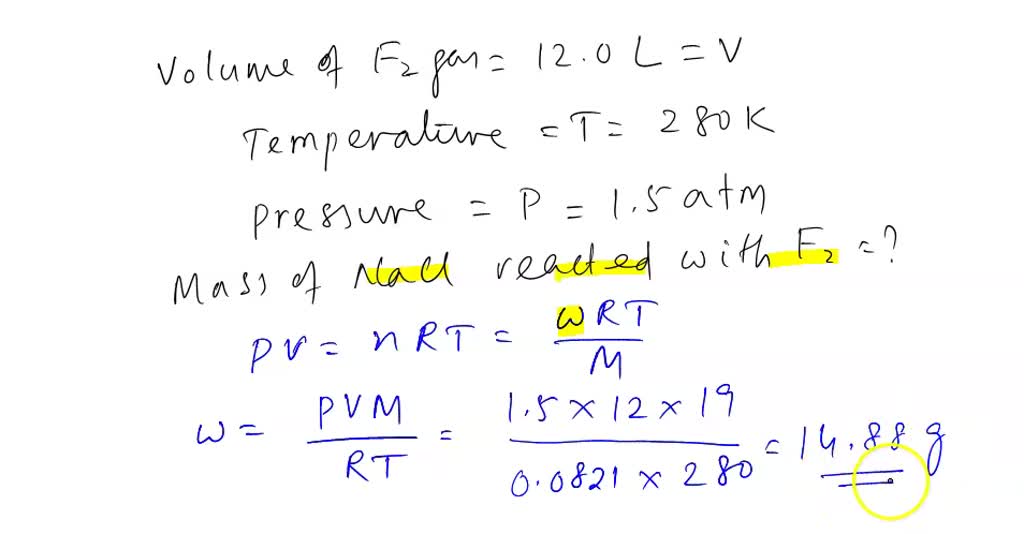 Volume of F2 gas = 12.0 L = V
Temperature = T = 280K
Pressure = P = 1.5 atm
Mass of NaCl reacted with F2 = ?
PV = nRT = wRT / M
w = PVM / RT = 1.5 × 12 × 19 / 0.0821 × 280 = 14.88 g